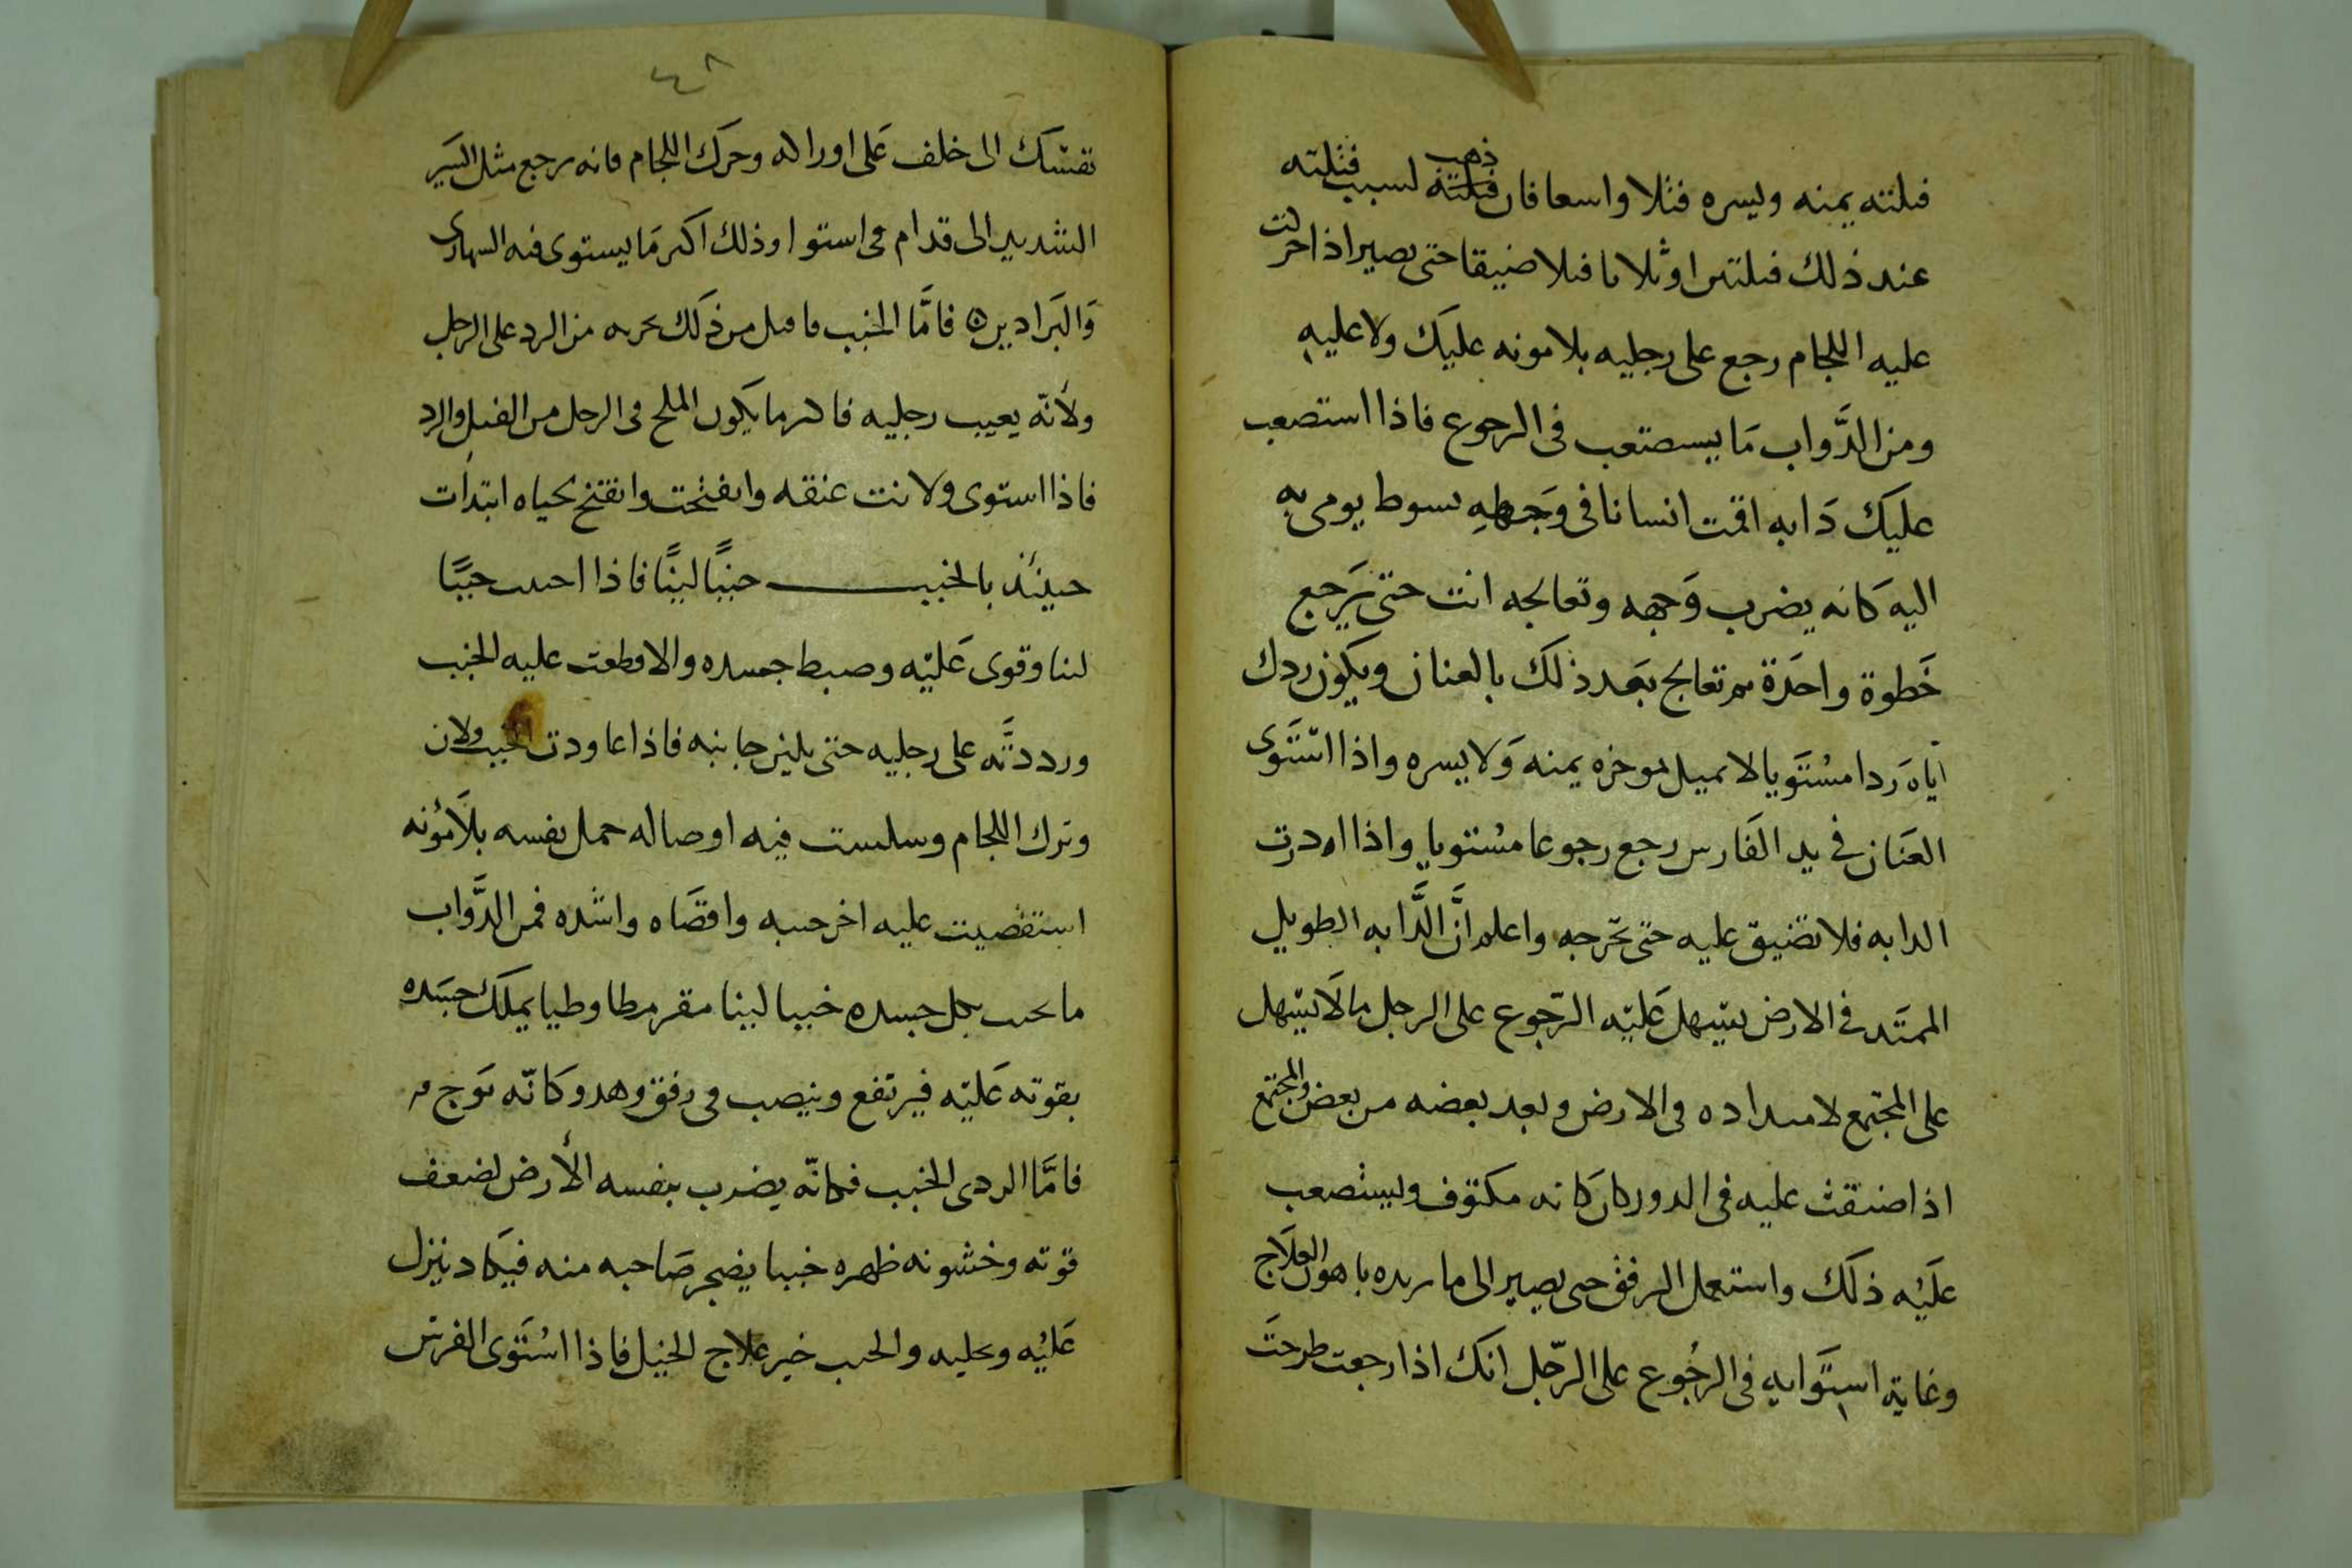 فتلته يمنه ويسره فتلا واسعا فان ذهب لسبب فتلته
عند ذلك فتلتين او ثلاثا فتلا ضيقا حتى يصير اذا حركت
عليه اللجام رجع على رجليه بلا مونه عليك ولا عليه
ومن الدَّواب مَا يستصعب فى الرجوع فاذا استصعب
عليك دَابه اقمت انسانا فى وَجهه بسوط يومى به
اليه كَانه يضرب وَجهه وتعالجه انت حتى يَرجع
خَطوة واحَدة ثم تعالج بَعد ذلك بالعنان ويكون ردك
اياه رَدا مسُتَويا لا تميل موخره يمنه وَلا يسره واذا استَوى
العَنان في يد الفَارس رجع رجوعا مسُتويا واذا اردت
الدابه فلا تضيق عليه حتى تحرجه واعلم انَّ الدَّابه الطويل
الممتَد في الارض يتسهل عَليه الرّجوع على الرجل ما لَا يتسهل
على المجتمع لامتداده فى الارض وبعد بعضه من بعض والمجتمع
اذا ضيقت عليه فى الدور كان كَانه مكتوف ويستصعب
علَيه ذلَك واستعمل الرفق حتى يصير الى ما تريده باهون العلَاج
وغاية استَوايه فى الرجُوع على الرّجل انك اذا رجعت طرحتَ
٤٨
نفسَك الى خلف عَلى اوراكه وحرَك اللجام فانه يرجع مثل السَير
الشديد الى قدام فى استوا وذلك اكثر مَا يستوى فيه السهارى
وَالبَرادين ه فامَّا الخبب فاقلل من ذلَك تحريه من الرد على الرجل
ولأنّه يعيب رجليه فاكثر ما يكَون الملح فى الرجل من الفتل والرد
فاذا استوى ولانت عنقه وانفتحت وانفتح لحياه ابتدأت
حينئذ بالخبب خببًا لينًا فاذا احبب خببًا
لينا وقوى عَليّه وضبط جسده والا قطعت عليه الخبب
ورددتَّه على رجليه حتى يلين جانبه فاذا عاودت الخبب ولان
وترك اللجام وسلست فيه اوصاله حمل نفسه بلَا مؤنه
استقصيت عليه اخر خببه واقصَاه واشده فمن الدَّواب
ما يخب بكل جسده خببا لينا مقرمطا وطيا يملَك جسَده
بقوته عَليّه فيرتفع وينصب فى رفق وهدو كَانّه موَج
فامَّا الردى الخبب فكانّه يضرب بنفسه الأرض لضعف
قوته وخشونه ظهره خببا يضجر صَاحبه منه فيكَاد ينزل
عَليُه ويخليه والخبب خير علاج الخيل فاذا استَوى الفرسَ